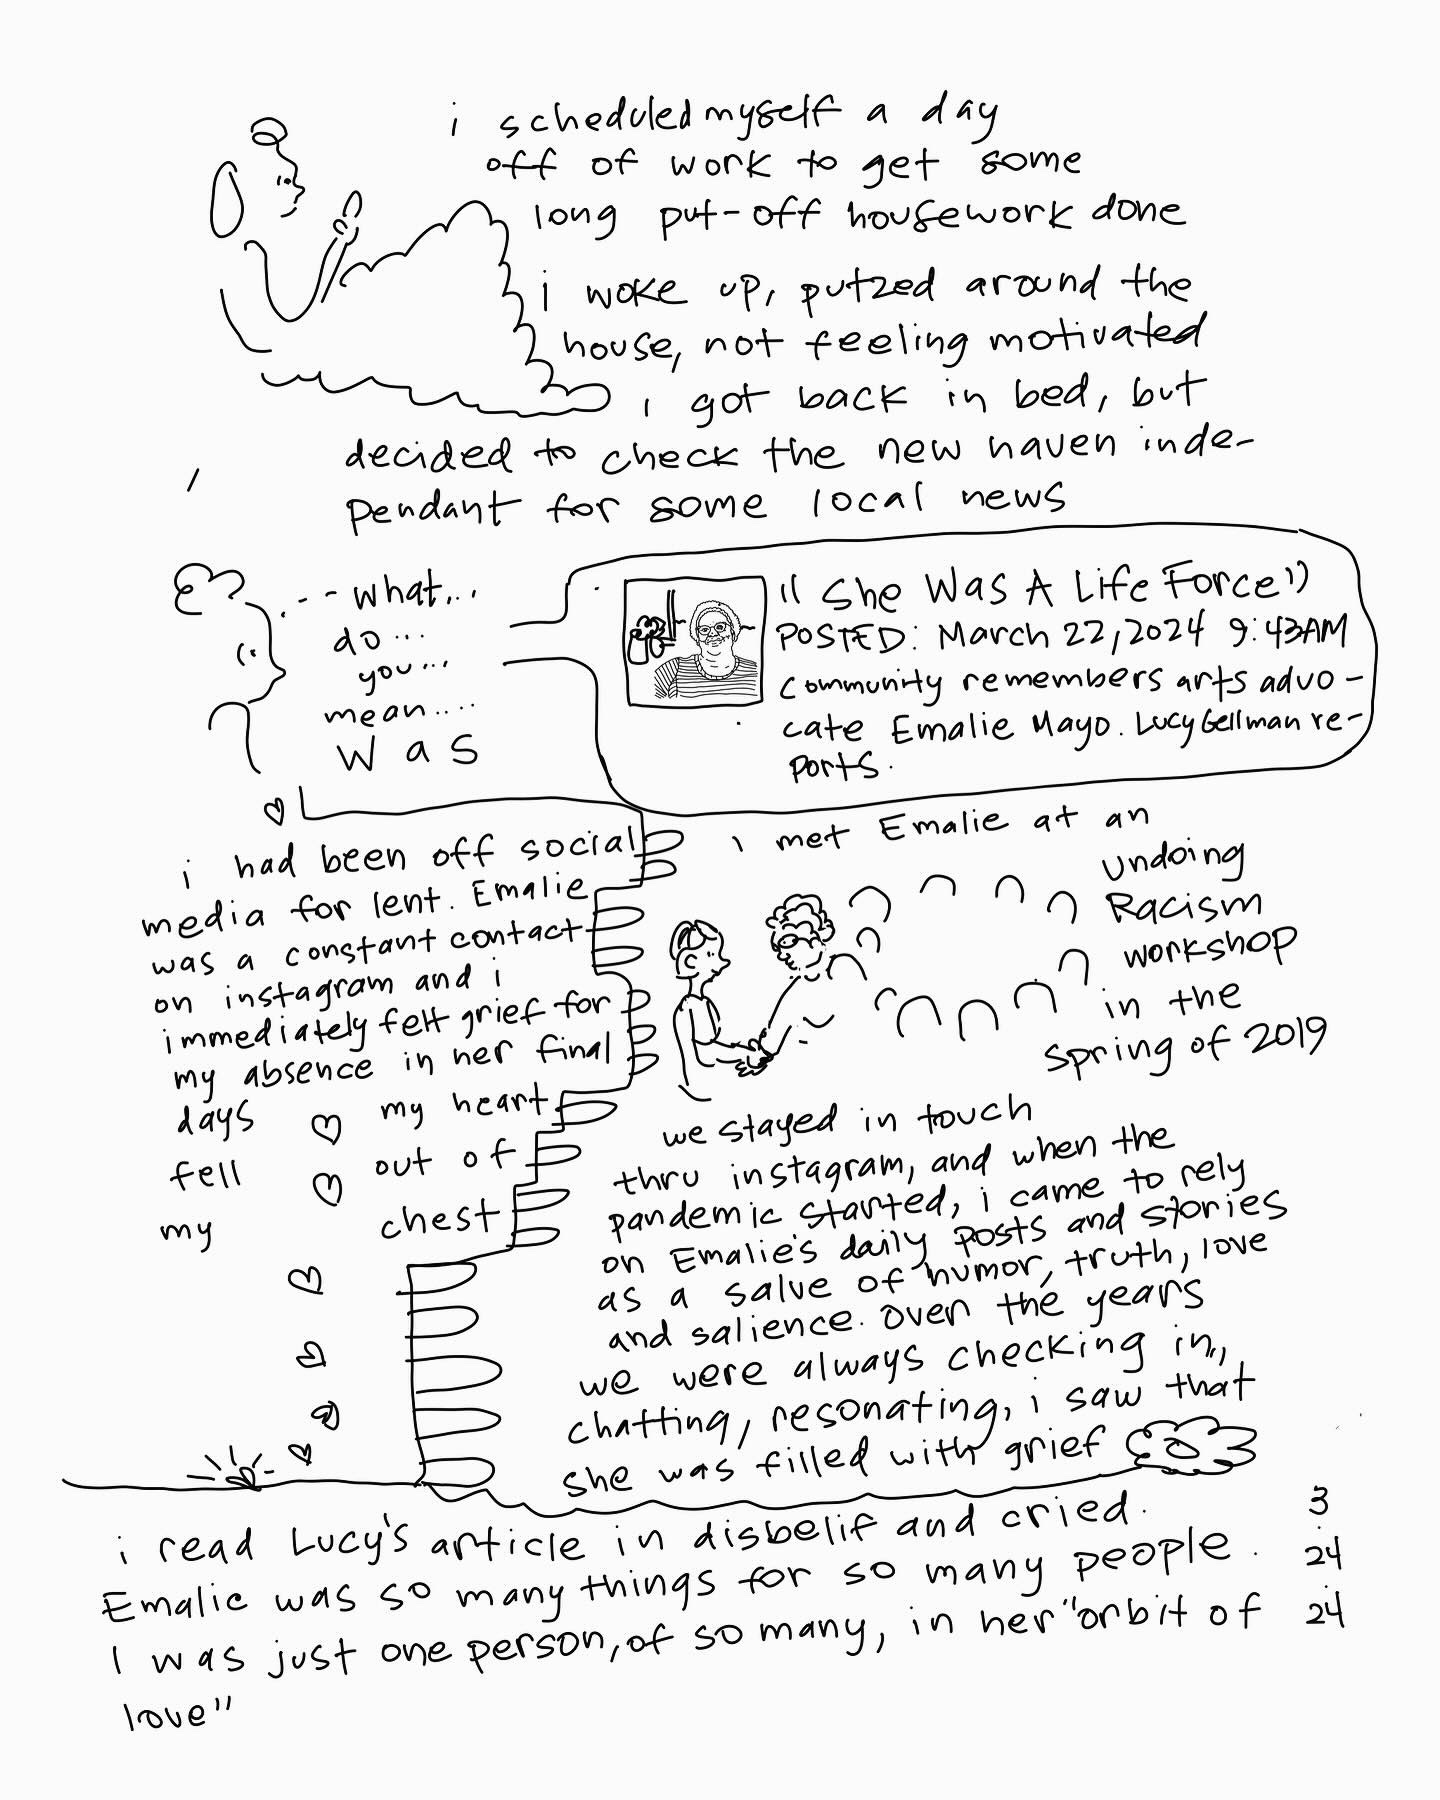 i scheduled myself a day
off of work to get some
long put-off housework done
i woke up, putzed around the
house, not feeling motivated
i got back in bed, but
decided to check the new haven inde-
pendant for some local news
--- what...
do...
you...
mean....
was
"She Was A Life Force"
POSTED: March 22, 2024 9:43AM
Community remembers arts advo-
cate Emalie Mayo. Lucy Gellman re-
ports.
i had been off social
media for lent. Emalie
was a constant contact
on instagram and i
immediately felt grief for
my absence in her final
days my heart
fell out of
my chest
i met Emalie at an
undoing
Racism
workshop
in the
spring of 2019
we stayed in touch
thru instagram, and when the
pandemic started, i came to rely
on Emalie's daily posts and stories
as a salve of humor, truth, love
and salience. over the years
we were always checking in,,
chatting, resonating, i saw that
she was filled with grief
i read Lucy's article in disbelif and cried.
Emalie was so many things for so many people.
I was just one person, of so many, in her "orbit of
love"
3
24
24